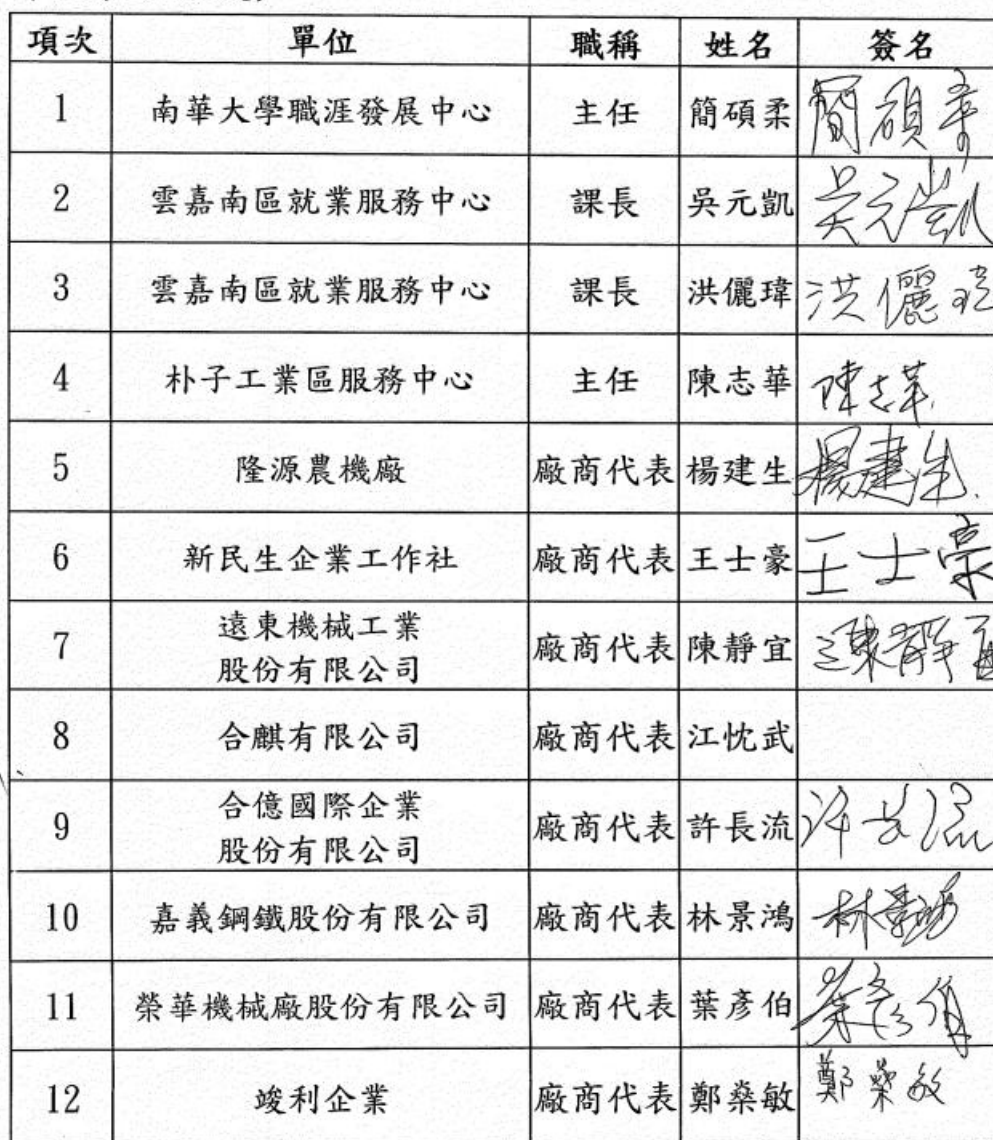 項次 單位 職稱 姓名 簽名
1 南華大學職涯發展中心 主任 簡碩柔 簡碩柔
2 雲嘉南區就業服務中心 課長 吳元凱 吳元凱
3 雲嘉南區就業服務中心 課長 洪儷瑋 洪儷瑋
4 朴子工業區服務中心 主任 陳志華 陳志華
5 隆源農機廠 廠商代表 楊建生 楊建生
6 新民生企業工作社 廠商代表 王士豪 王士豪
7 遠東機械工業 廠商代表 陳靜宜 陳靜宜
股份有限公司
8 合麒有限公司 廠商代表 江忱武
9 合億國際企業 廠商代表 許長流 許長流
股份有限公司
10 嘉義鋼鐵股份有限公司 廠商代表 林景鴻 林景鴻
11 榮華機械廠股份有限公司 廠商代表 葉彥伯 葉彥伯
12 竣利企業 廠商代表 鄭燊敏 鄭燊敏